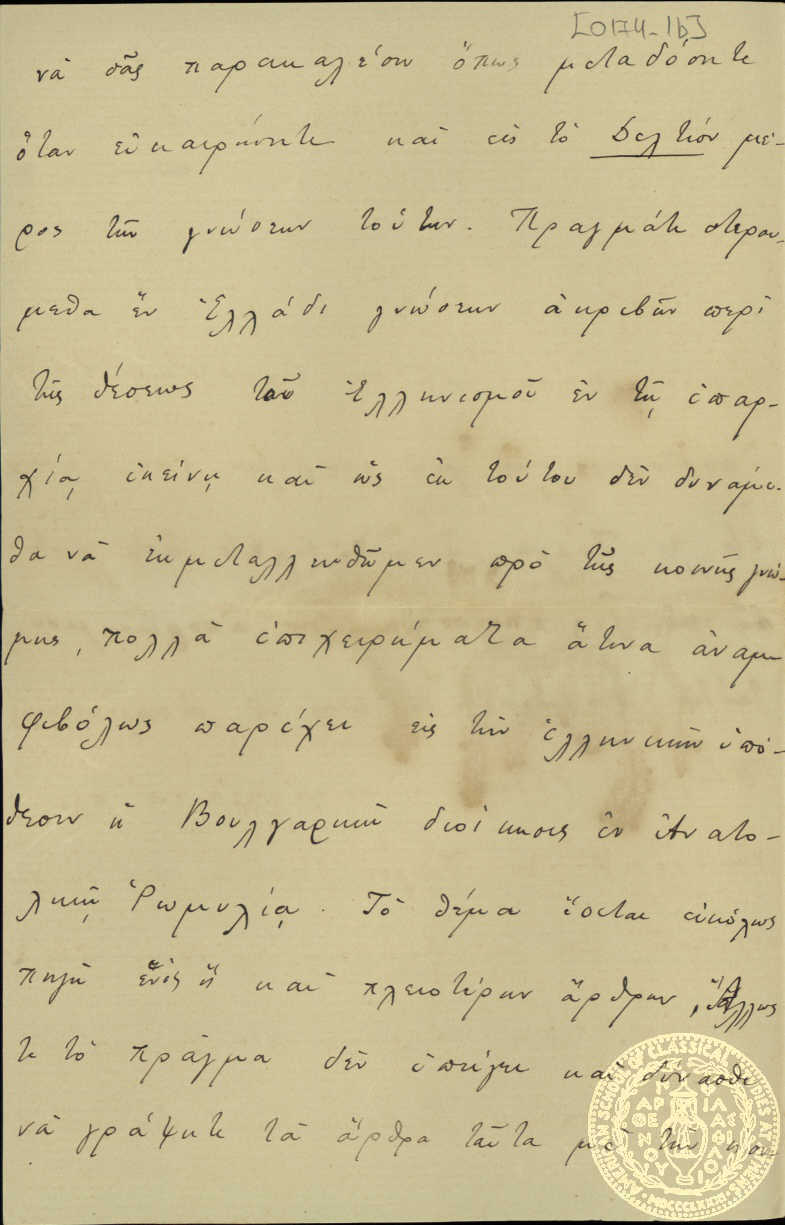 [0174-1b]
νὰ σᾶς παρακαλέσω ὅπως μεταδόσητε
ὅταν εὐκαιρήσητε καὶ εἰς τὸ Δελτίον μέ-
ρος τῶν γνώσεων τούτων. Πράγματι στερού-
μεθα ἐν Ἑλλάδι γνώσεων ἀκριβῶν περὶ
τῆς θέσεως τοῦ Ἑλληνισμοῦ ἐν τῇ ἐπαρ-
χίᾳ ἐκείνῃ καὶ ὡς ἐκ τούτου δὲν δυνάμε-
θα νὰ ἐκμεταλλευθῶμεν πρὸ τῆς κοινῆς γνώ-
μης, πολλὰ ἐπιχειρήματα ἅτινα ἀναμ-
φιβόλως παρέχει εἰς τὴν ἑλληνικὴν ὑπό-
θεσιν ἡ Βουλγαρικὴ διοίκησις ἐν Ἀνατο-
λικῇ Ῥωμυλίᾳ. Τὸ θέμα ἔσεται εὐκόλως
πηγὴ ἑνὸς ἢ καὶ πλειοτέρων ἄρθρων, ἄλλως
τε τὸ πρᾶγμα δὲν ἐπείγει καὶ δύνασθε
νὰ γράψητε τὰ ἄρθρα ταῦτα μὲ τὴν
AMERICAN SCHOOL OF CLASSICAL STUDIES AT
MDCCCLXXXI
ΠΑΡΘΕΝΟΥ ΦΙΛΑΣ